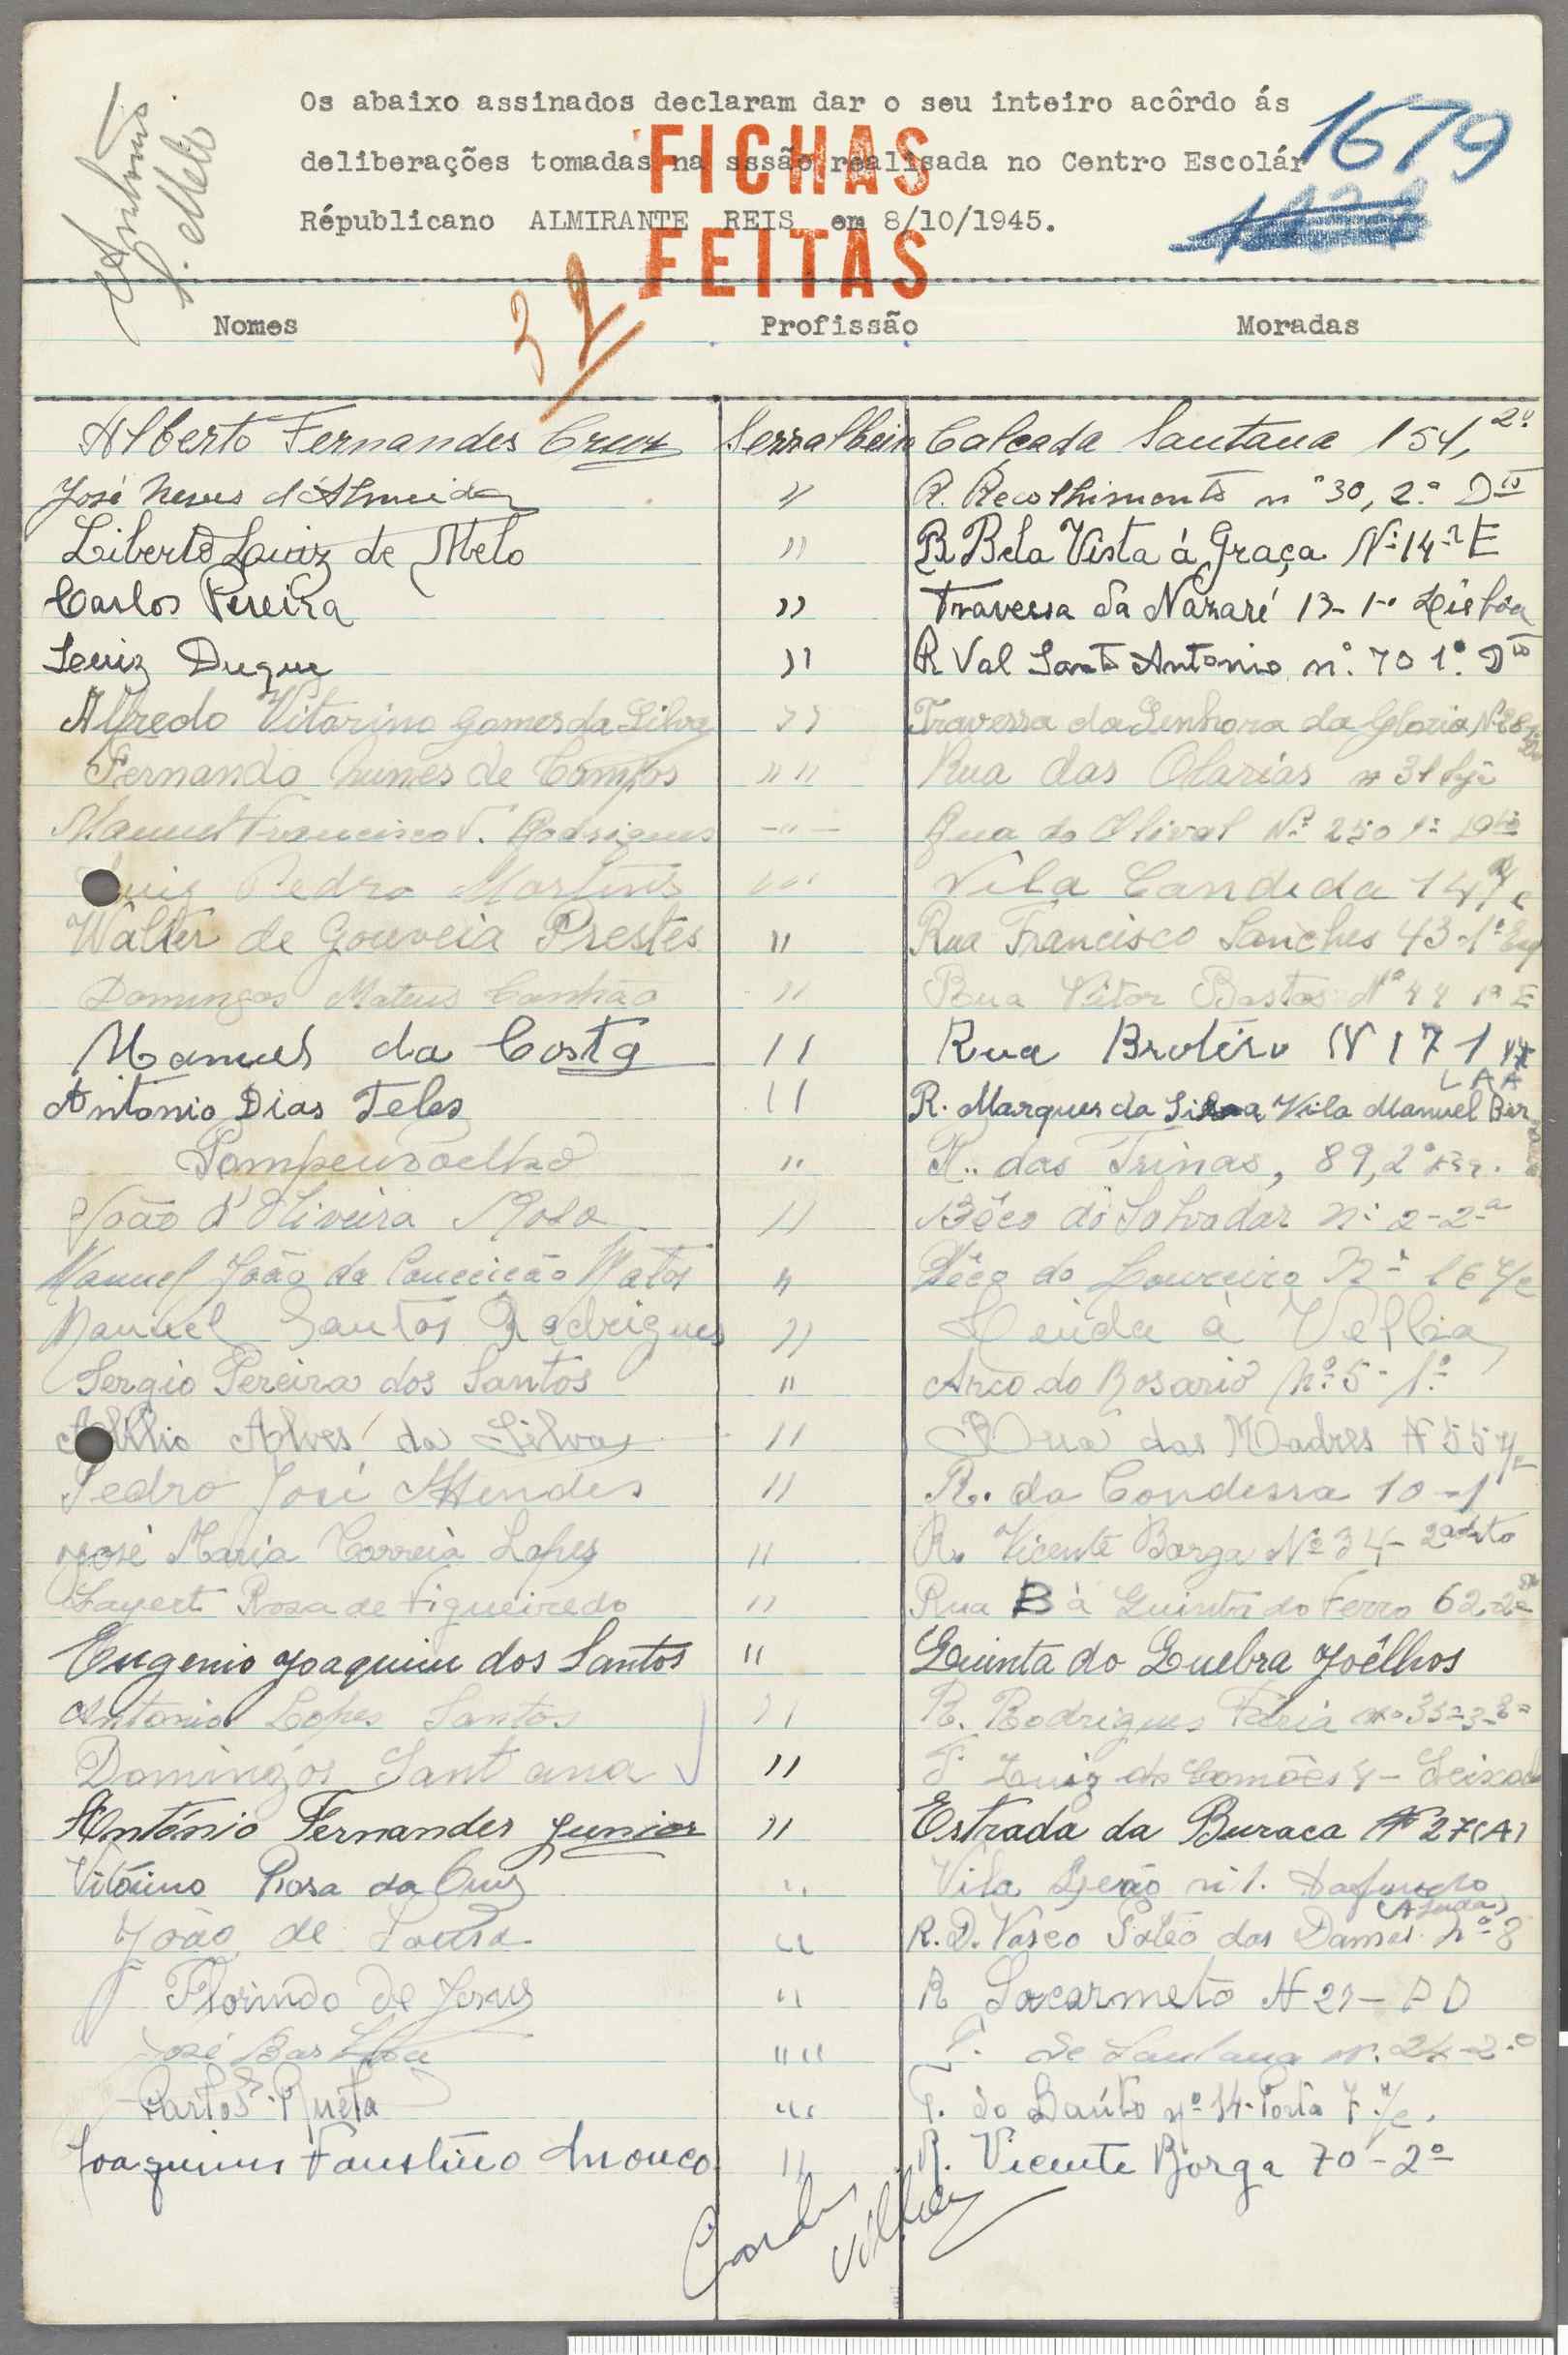 Antonio
S. Melo
Os abaixo assinados declaram dar o seu inteiro acôrdo ás
1679
deliberações tomadas na sssão realisada no Centro Escolár
Républicano ALMIRANTE REIS em 8/10/1945.
FICHAS
FEITAS
32
Nomes Profissão Moradas
Alberto Fernandes Cruz Serralheiro Calçada Santana 154, 2º
José Neves d'Almeida " R. Recolhimento nº 30, 2.º Dto
Liberto Luiz de Melo " R. Bela Vista á Graça Nº 14 E
Carlos Pereira " Travessa da Nazaré 13-1º Lisboa
Luiz Duque " R Val Santo Antonio nº 70 1º Dto
Alfredo Vitorino Gomes da Silva " Travessa da Senhora da Gloria Nº
Fernando Nunes de Campos " " Rua das Olarias nº 31 loja
Manuel Francisco V. Rodrigues - " - Rua do Olival Nº 250 1º
Luiz Pedro Martins " Vila Candida
Walter de Gouveia Prestes " Rua Francisco Sanches 43-1º Esq
Domingos Mateus Canhão " Rua Vitor Bastos Nº 44 1º E
Manuel da Costa " Rua Brotéro N 171
Antonio Dias Teles " R. Marques da Silva Vila Manuel Ber
Pompeu Coelho " R. das Trinas, 89, 2º Esq.
João d'Oliveira Rosa " Bêco do Salvador nº 2-2º
Manuel João da Conceição Matos " Bêco do Loureiro Nº 16 r/c
Manuel Santos Rodrigues " Linda à Velha
Sergio Pereira dos Santos " Arco do Rosario nº 5-1º
Abilio Alves da Silva " Rua das Madres N 55 r/c
Pedro José Mendes " R. da Condessa 10-1
José Maria Correia Lopes " R. Vicente Borga Nº 34-2º dto
Rosa de Figueiredo " Rua B à Quinta do Ferro 62-2º
Eugenio Joaquim dos Santos " Quinta do Quebra Joêlhos
Antonio Lopes Santos " R. Rodrigues Faria nº 35
Domingos Sant'ana " T. Luiz de Camões 4-
António Fernandes Junior " Estrada da Buraca Nº 27(A)
Vitorino Rosa da Cruz " Vila nº 1. Dafundo
(Ajuda)
João de Sousa " R. D. Vasco Páteo das Damas nº 8
Florindo de Jesus " R Sacramento N 29 - P D
José " " T. de Santana nº. 24-2.º
Carlos " T. do nº 14-Porta 7 r/c.
Joaquim Faustino " R. Vicente Borga 70-2º